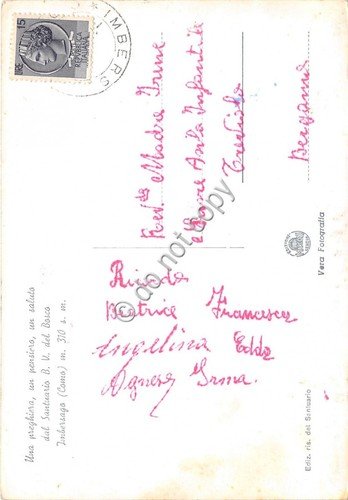 5
REPUBBLICA
ITALIANA
IMBERS
Una preghiera, un pensiero, un saluto
dal Santuario B. V. del Bosco
Imbersago (Como) m. 310 s. m.
Rev.da Madre Irene
Suore Asilo Infantile
Treviolo
Bergamo
Ricordo
Beatrice Francesca
Angelina Edda
Agnese Irma.
Vera Fotografia
Ediz. ris. del Santuario
do not copy